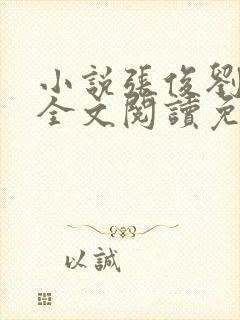 小說張俊劉
全文閱讀免
以誠